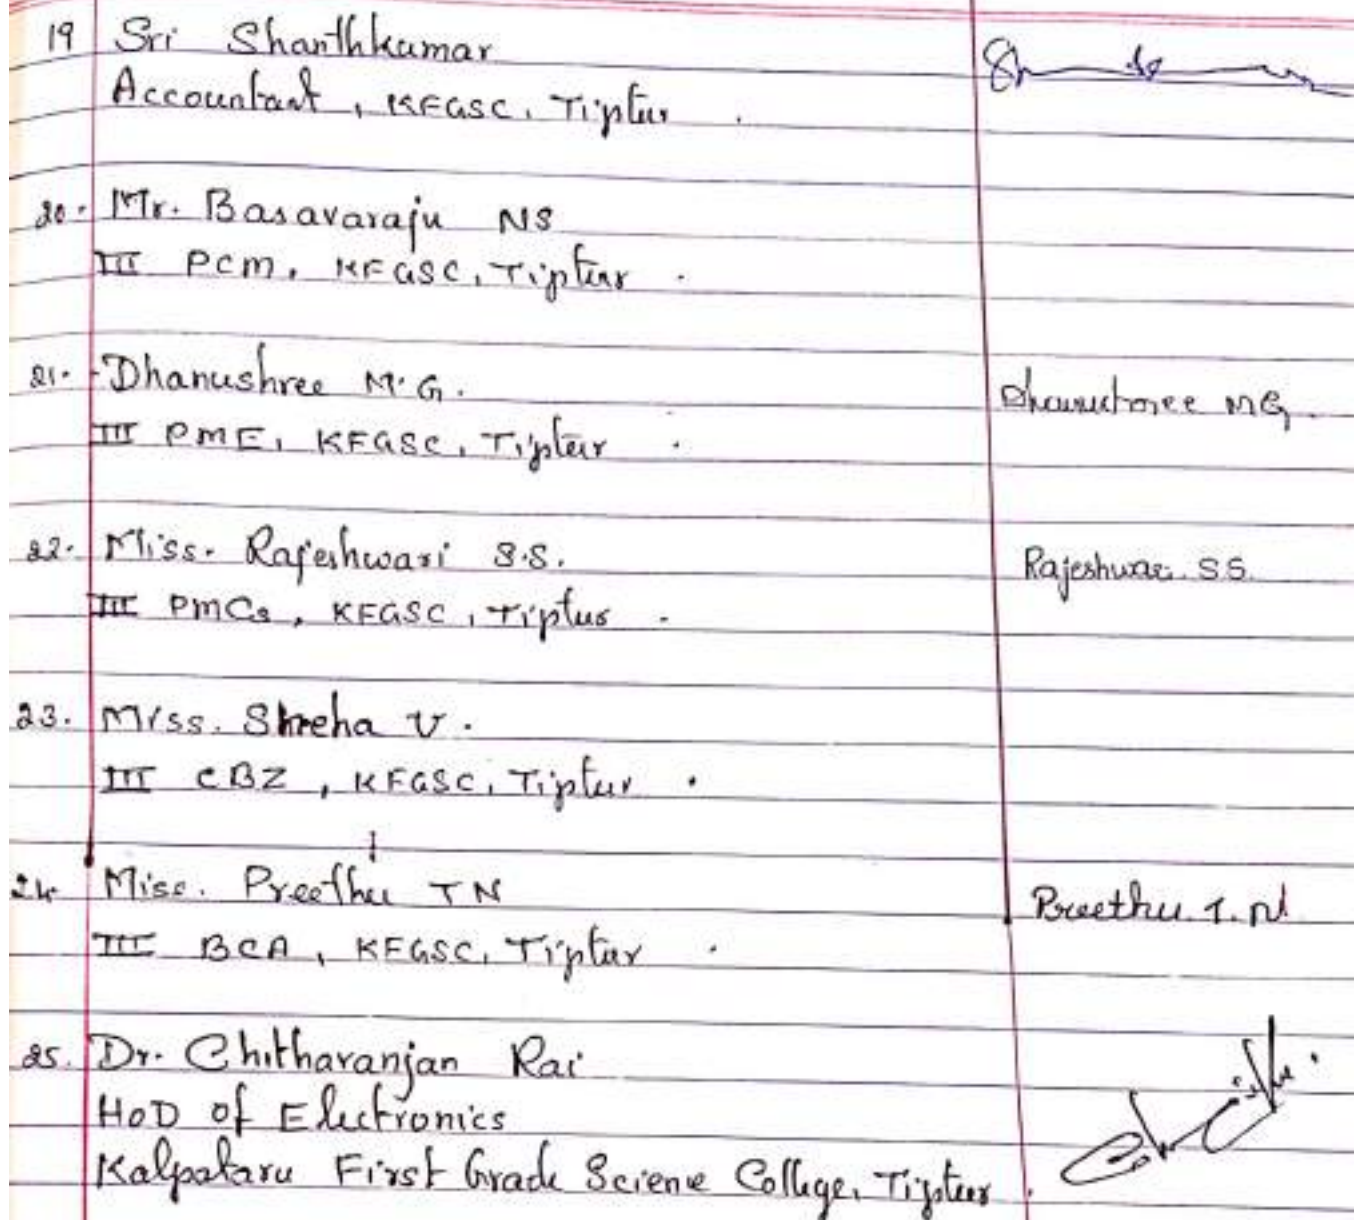 19 Sri Shanthkumar
Accountant, KFGSC, Tiptur.
20. Mr. Basavaraju NS
III PCM, KFGSC, Tiptur.
21. Dhanushree M.G. Dhanushree MG.
III PME, KFGSC, Tiptur.
22. Miss. Rajeshwari S.S. Rajeshwari. S.S.
III PMCs, KFGSC, Tiptur.
23. Miss. Shreha V.
III CBZ, KFGSC, Tiptur.
24. Miss. Preethu TN Preethu. T. N
III BCA, KFGSC, Tiptur.
25. Dr. Chitharanjan Rai
HOD of Electronics
Kalpataru First Grade Sciene College, Tiptur.